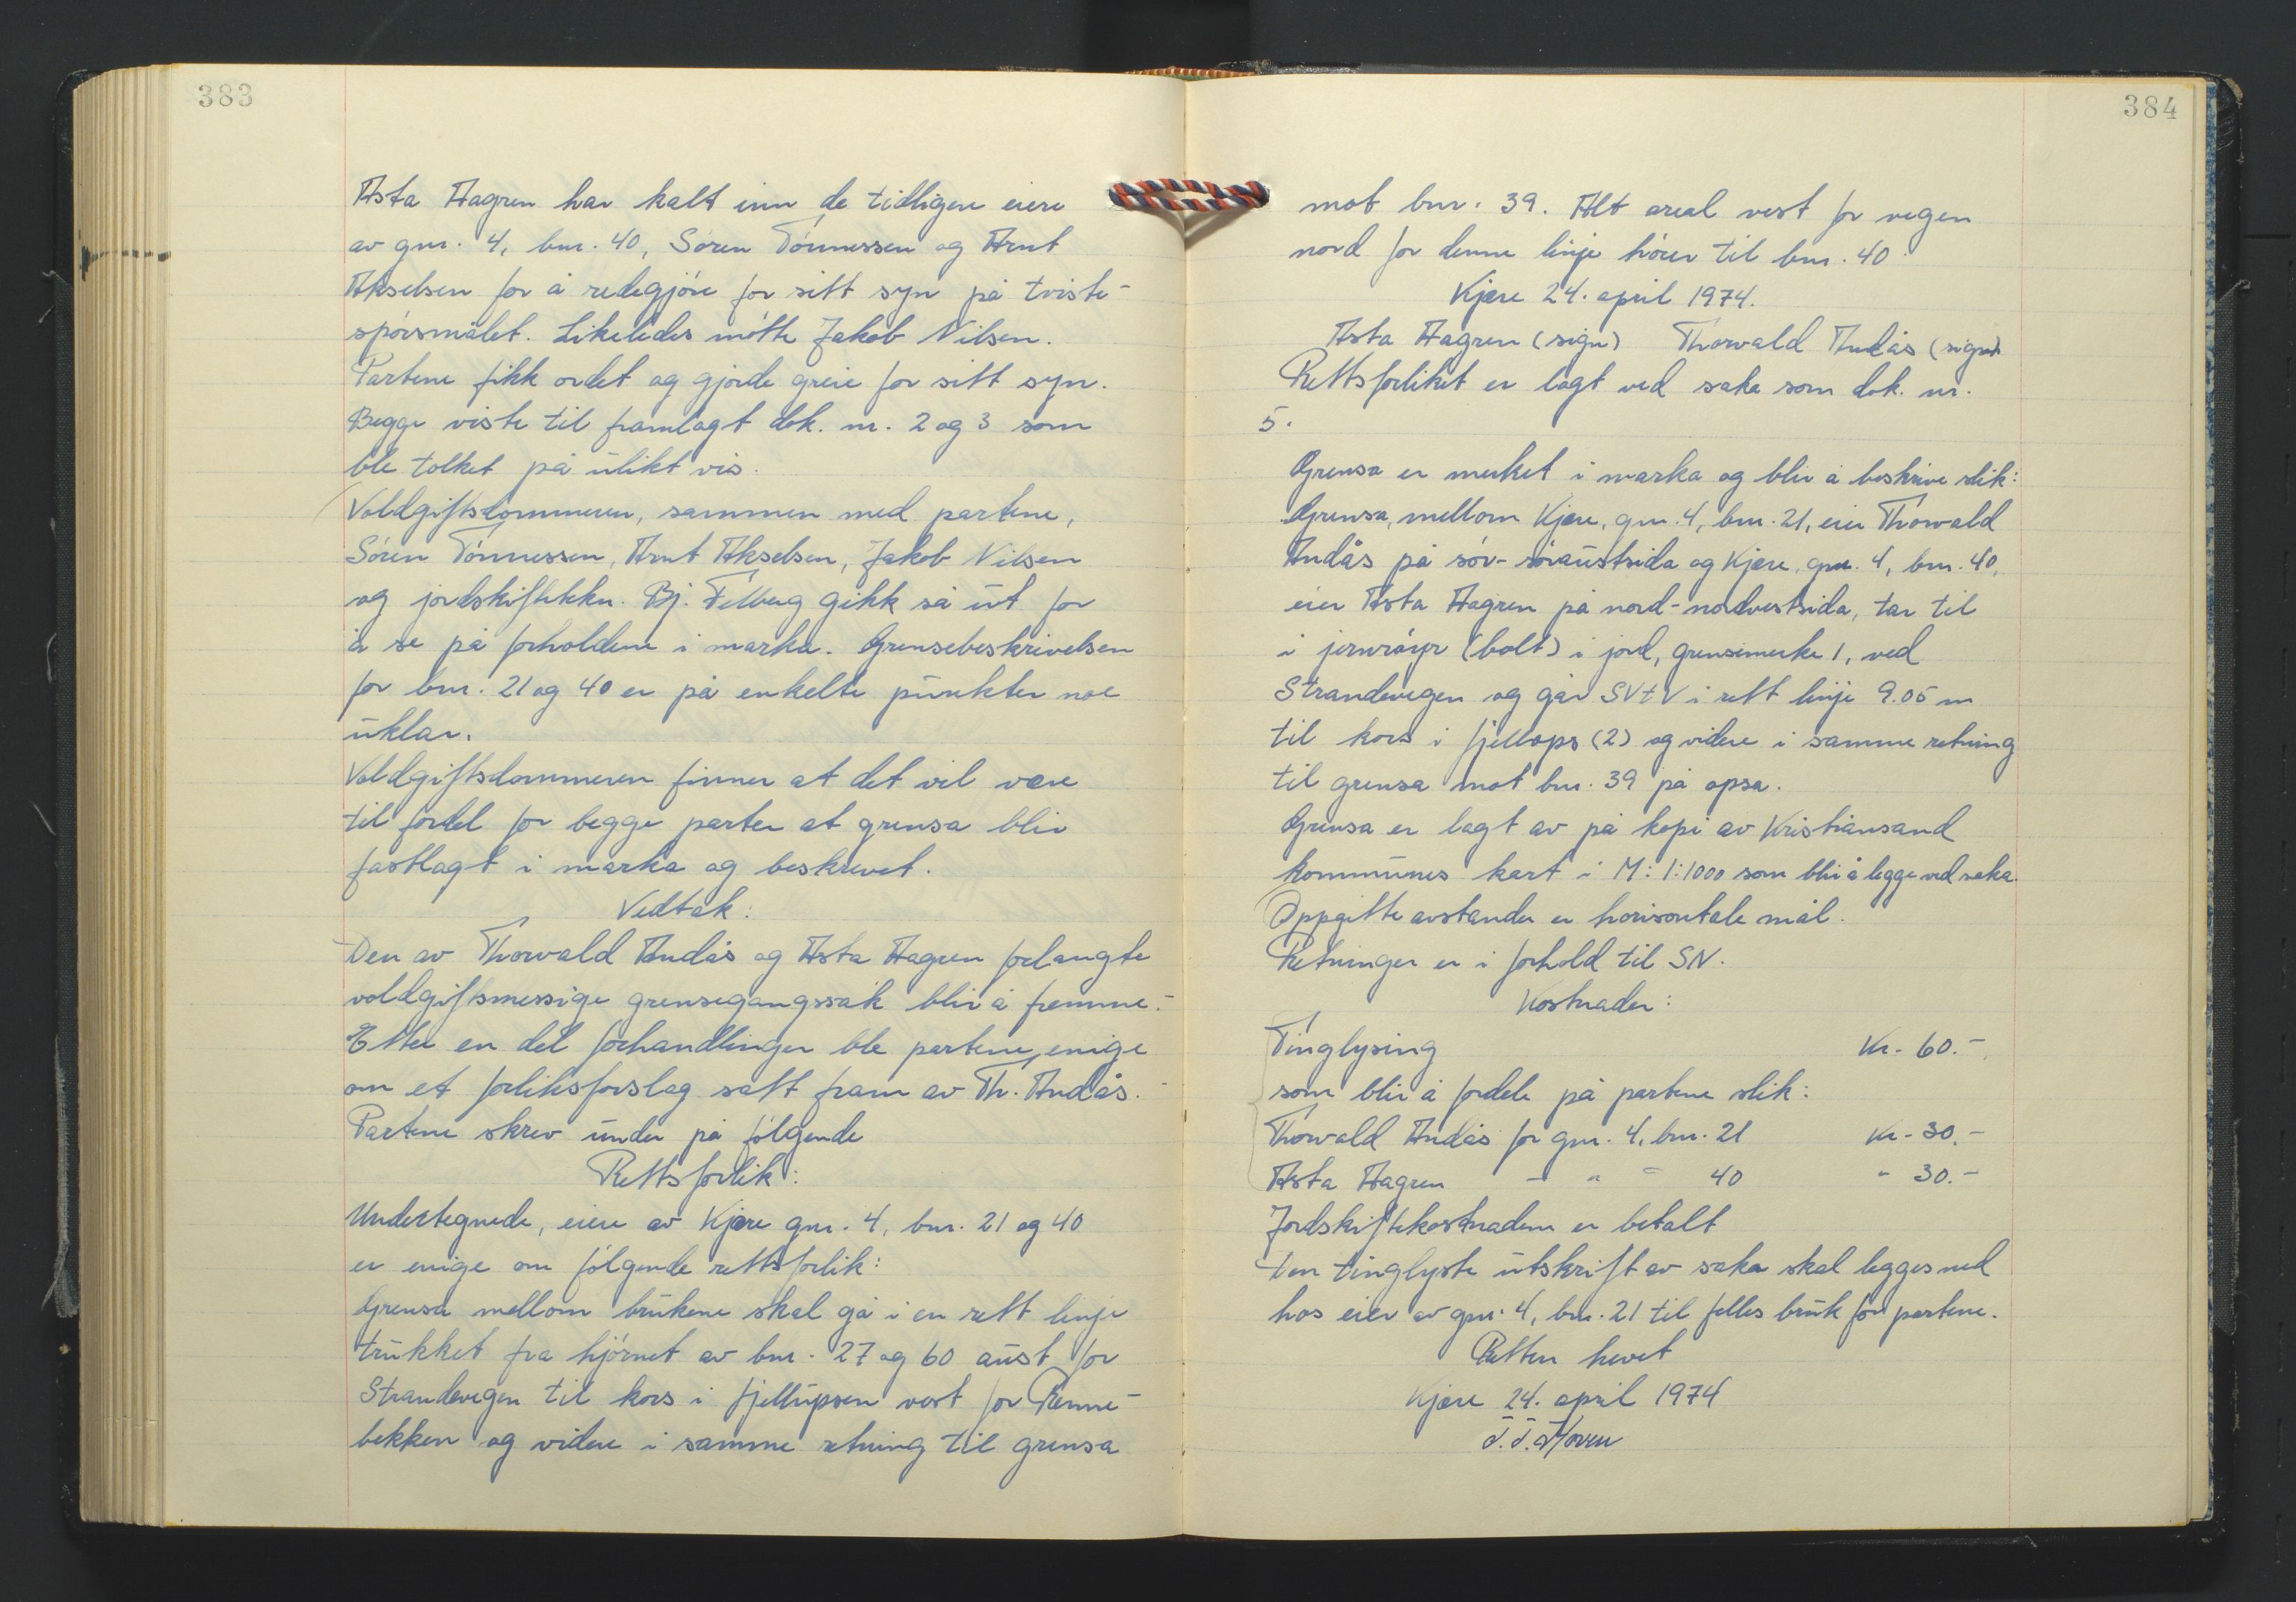 383
Asta Hagren har kalt inn de tidligere eiere
av gnr. 4, bnr. 40, Sören Tönnessen og Arnt
Akselsen for å redegjöre for sitt syn på tviste-
spörsmålet. Likeledes mötte Jakob Nilsen.
Partene fikk ordet og gjorde greie for sitt syn.
Begge viste til framlagt dok. nr. 2 og 3 som
ble tolket på ulikt vis.
Voldgiftsdommeren, sammen med partene,
Sören Tönnessen, Arnt Akselsen, Jakob Nilsen
og jordskiftekkn. Bj. Felberg gikk så ut for
å se på forholdene i marka. Grensebeskrivelsen
for bnr. 21 og 40 er på enkelte punkter noe
uklar.
Voldgiftsdommeren finner at det vil være
til fordel for begge parter at grensa blir
fastlagt i marka og beskrevet.
Vedtak:
Den av Thorvald Andås og Asta Hagren forlangte
voldgiftsmessige grensegangssak blir å fremme.-
Etter en del forhandlinger ble partene enige
om et forliksforslag satt fram av Th. Andås.-
Partene skrev under på fölgende
Rettsforlik:
Undertegnede, eiere av Kjære gnr. 4, bnr. 21 og 40
er enige om fölgende rettsforlik:
Grensa mellom brukene skal gå i en rett linje
trukket fra hjörnet av bnr. 27 og 60 aust for
Strandevegen til kors i fjellupsen vest for Renne-
bekken og videre i samme retning til grensa
384
mot bnr. 39. Alt areal vest for vegen
nord for denne linje hörer til bnr. 40.
Kjære 24. april 1974.
Asta Hagren (sign) Thorvald Andås (sign)
Rettsforliket er lagt ved saka som dok. nr.
5.
Grensa er merket i marka og blir å beskrive slik:
Grensa, mellom Kjære, gnr. 4, bnr. 21, eier Thorvald
Andås på sör-söraustsida og Kjære, gnr. 4, bnr. 40,
eier Asta Hagren på nord-nordvestsida, tar til
i jernröyr (bolt) i jord, grensemerke 1, ved
Strandevegen og går SVtV i rett linje 9.05 m
til kors i fjellops (2) og videre i samme retning
til grensa mot bnr. 39 på opsa.
Grensa er lagt av på kopi av Kristiansand
kommunes kart i M: 1:1000 som blir å legge ved saka.
Oppgitte avstander er horisontale mål.
Retninger er i forhold til SN.
Kostnader:
Tinglysing Kr. 60.-
som blir å fordele på partene slik:
Thorvald Andås for gnr. 4, bnr. 21 Kr. 30.-
Asta Hagren - " - 40 " 30.-
Jordskiftekostnadene er betalt
Den tinglyste utskrift av saka skal legges ned
hos eier av gnr. 4, bnr. 21 til felles bruk for partene.
Retten hevet
Kjære 24. april 1974